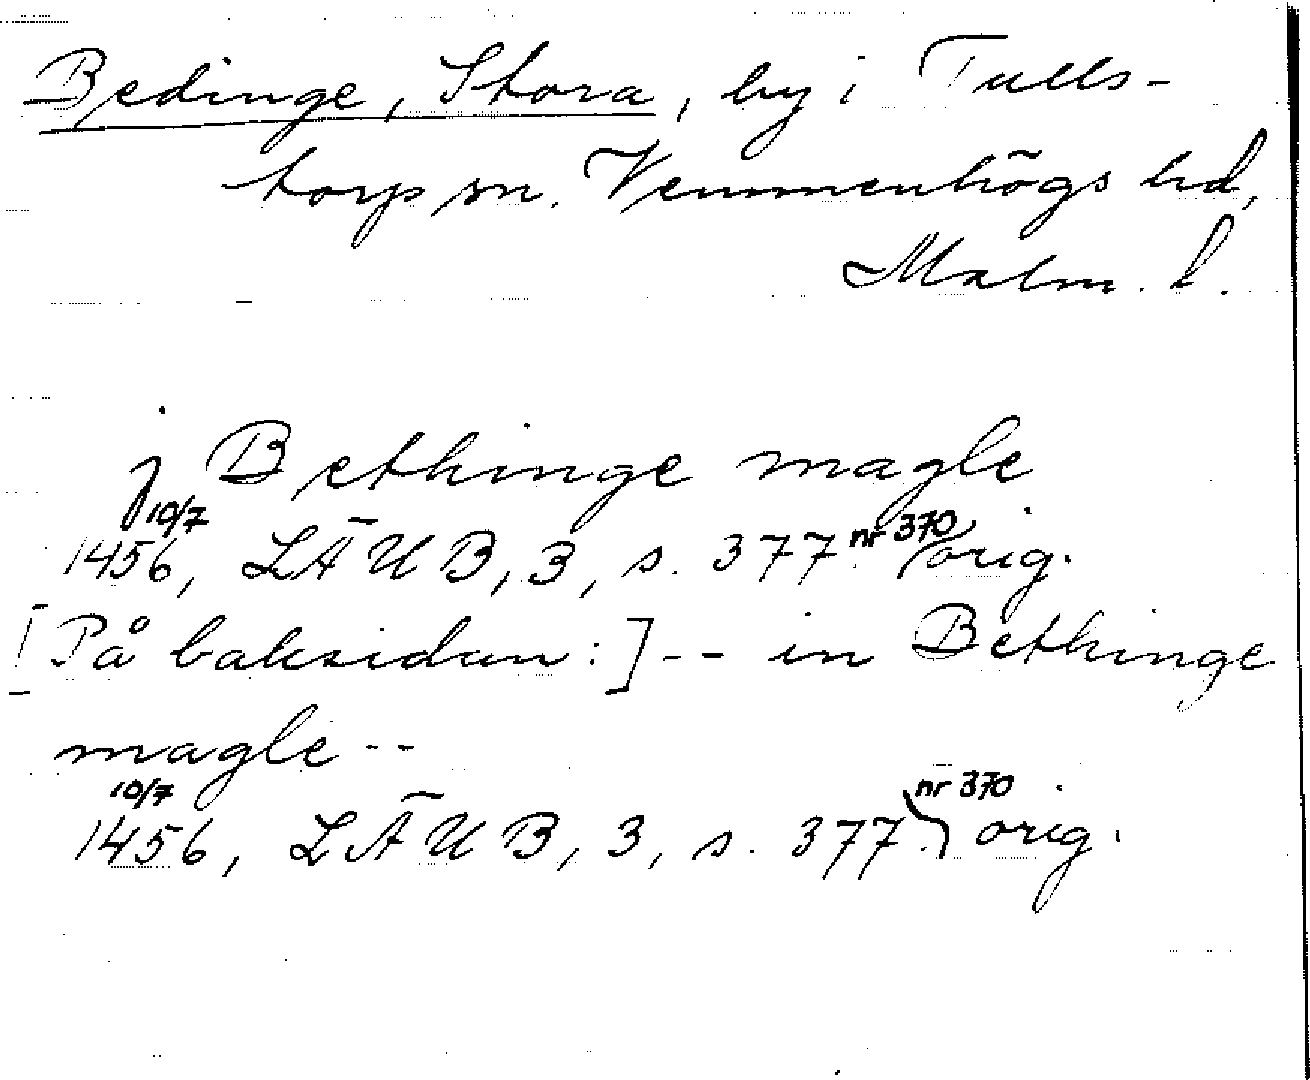 Bedinge, Stora, by i Tulls-
torp sn. Vemmenhögs hd,
Malm. l.
j Bethinge magle
10/7 nr 370
1456, LÄUB, 3, s. 377, orig.
[På baksidan:] -- in Bethinge
magle --
10/7 nr 370
1456, LÄUB, 3, s. 377, orig.